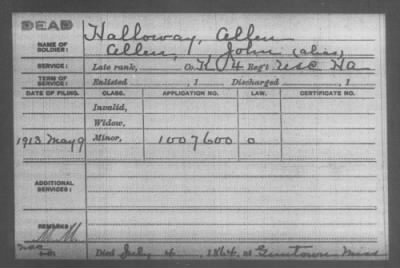 DEAD
Halloway, Allen
NAME OF SOLDIER:
Allen, John (alias)
SERVICE: Late rank, Co. K 4 Reg't USC HA
TERM OF SERVICE: Enlisted , 1 Discharged , 1
DATE OF FILING. CLASS. APPLICATION NO. LAW. CERTIFICATE NO.
Invalid,
Widow,
1913 May 9 Minor, 1007600 0
ADDITIONAL SERVICES:
REMARKS:
Died July 4, 1864, at Guntown, Miss